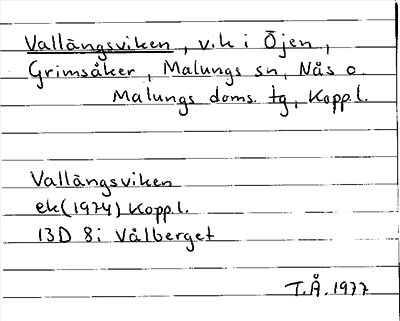 Vallängsviken, vik i Öjen,
Grimsåker, Malungs sn, Nås o.
Malungs doms. tg, Kopp.l.
Vallängsviken
ek(1974) Kopp.l.
13D 8i Vålberget
T.Å. 1977